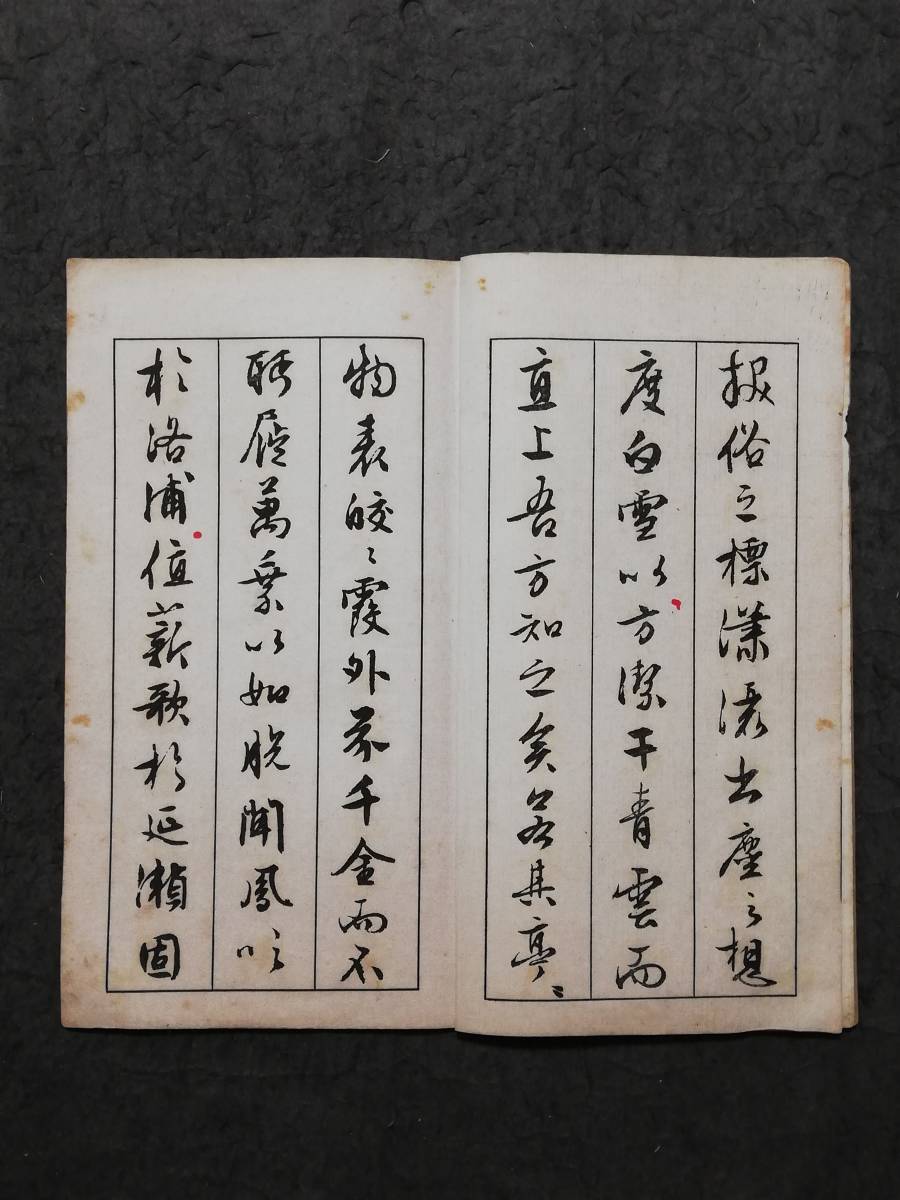 拔俗之標瀟灑出塵之想
度白雪以方潔干青雲而
直上吾方知之矣若其亭〻
物表皎〻霞外芥千金而不
眄屣萬乘以如脫聞鳳吹
於洛浦值薪歌於延瀨固